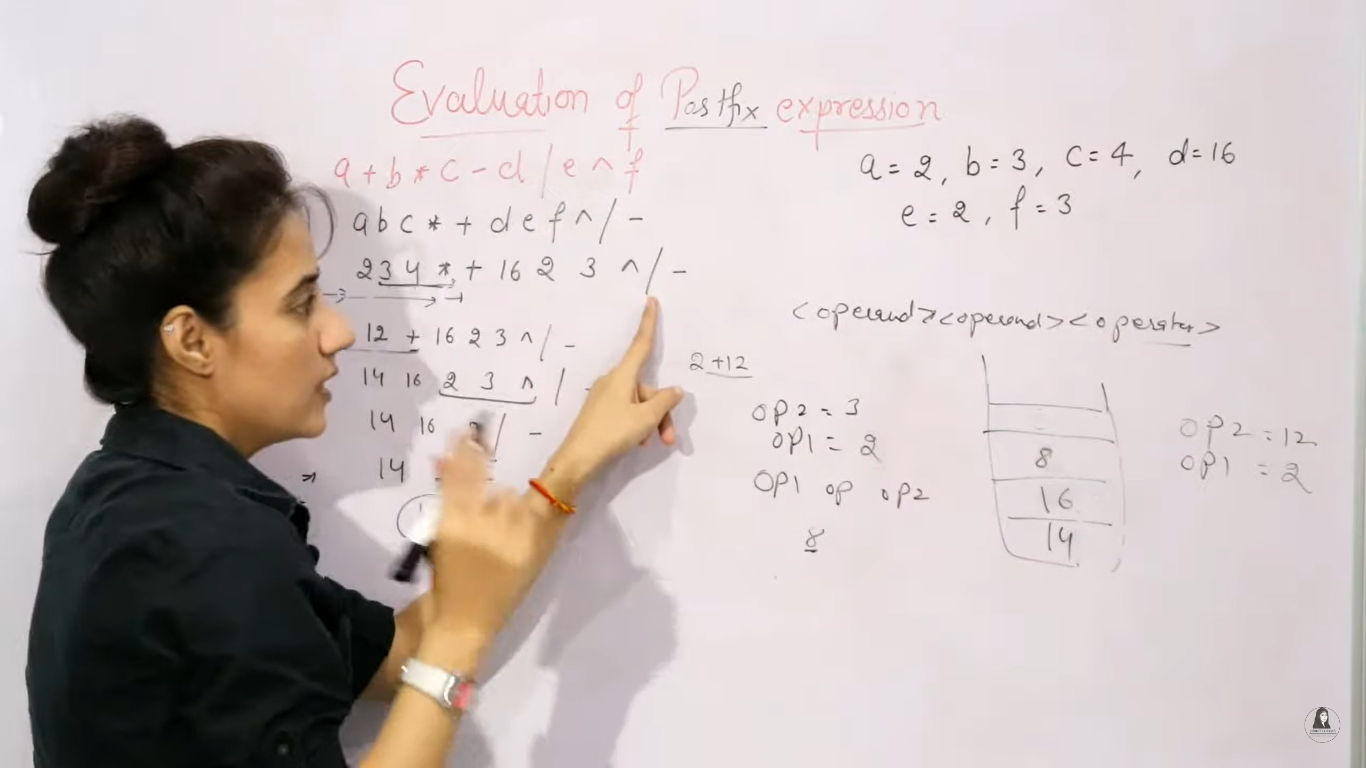 Evaluation of Postfix expression
a + b * c - d / e ^ f
a b c * + d e f ^ / -
2 3 4 * + 16 2 3 ^ / -
12 + 16 2 3 ^ / -
14 16 2 3 ^ /
14 16 / -
14
a = 2, b = 3, c = 4, d = 16
e = 2, f = 3
<operand><operand><operator>
2 + 12
OP2 = 3
OP1 = 2
OP1 op op2
8
8
16
14
OP2 = 12
OP1 = 2